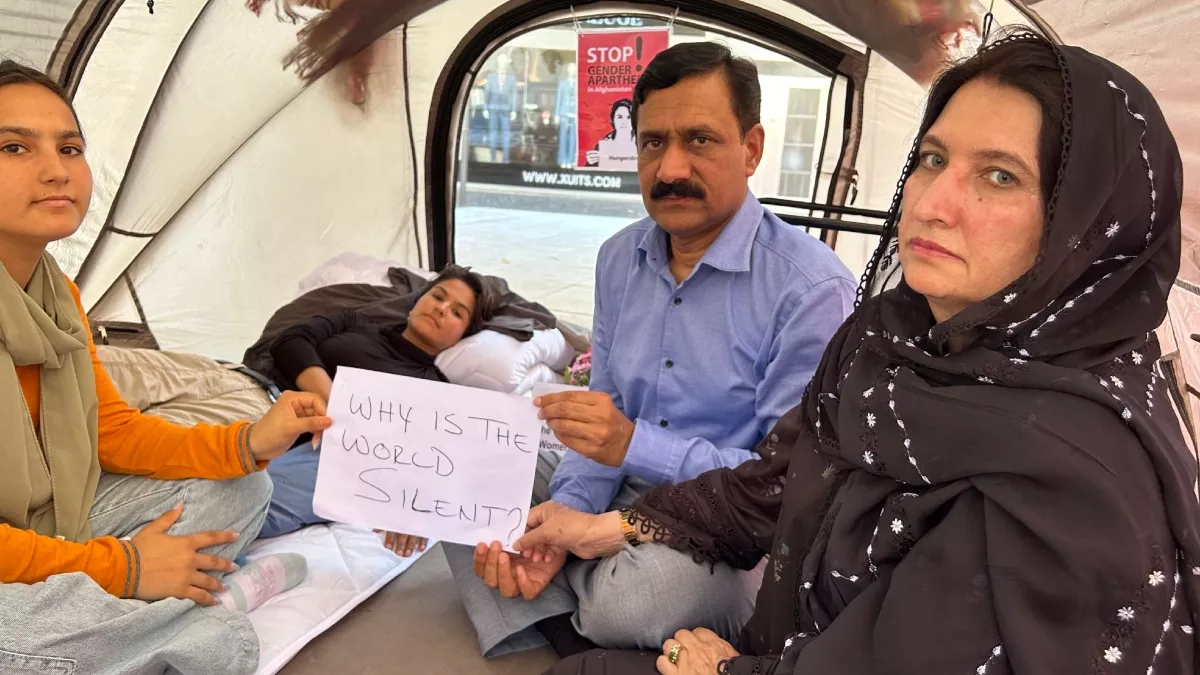 STOP!
GENDER
APARTHE
in Afghanistan
WWW.XUITS.COM
WHY IS THE
WORLD
SILENT?